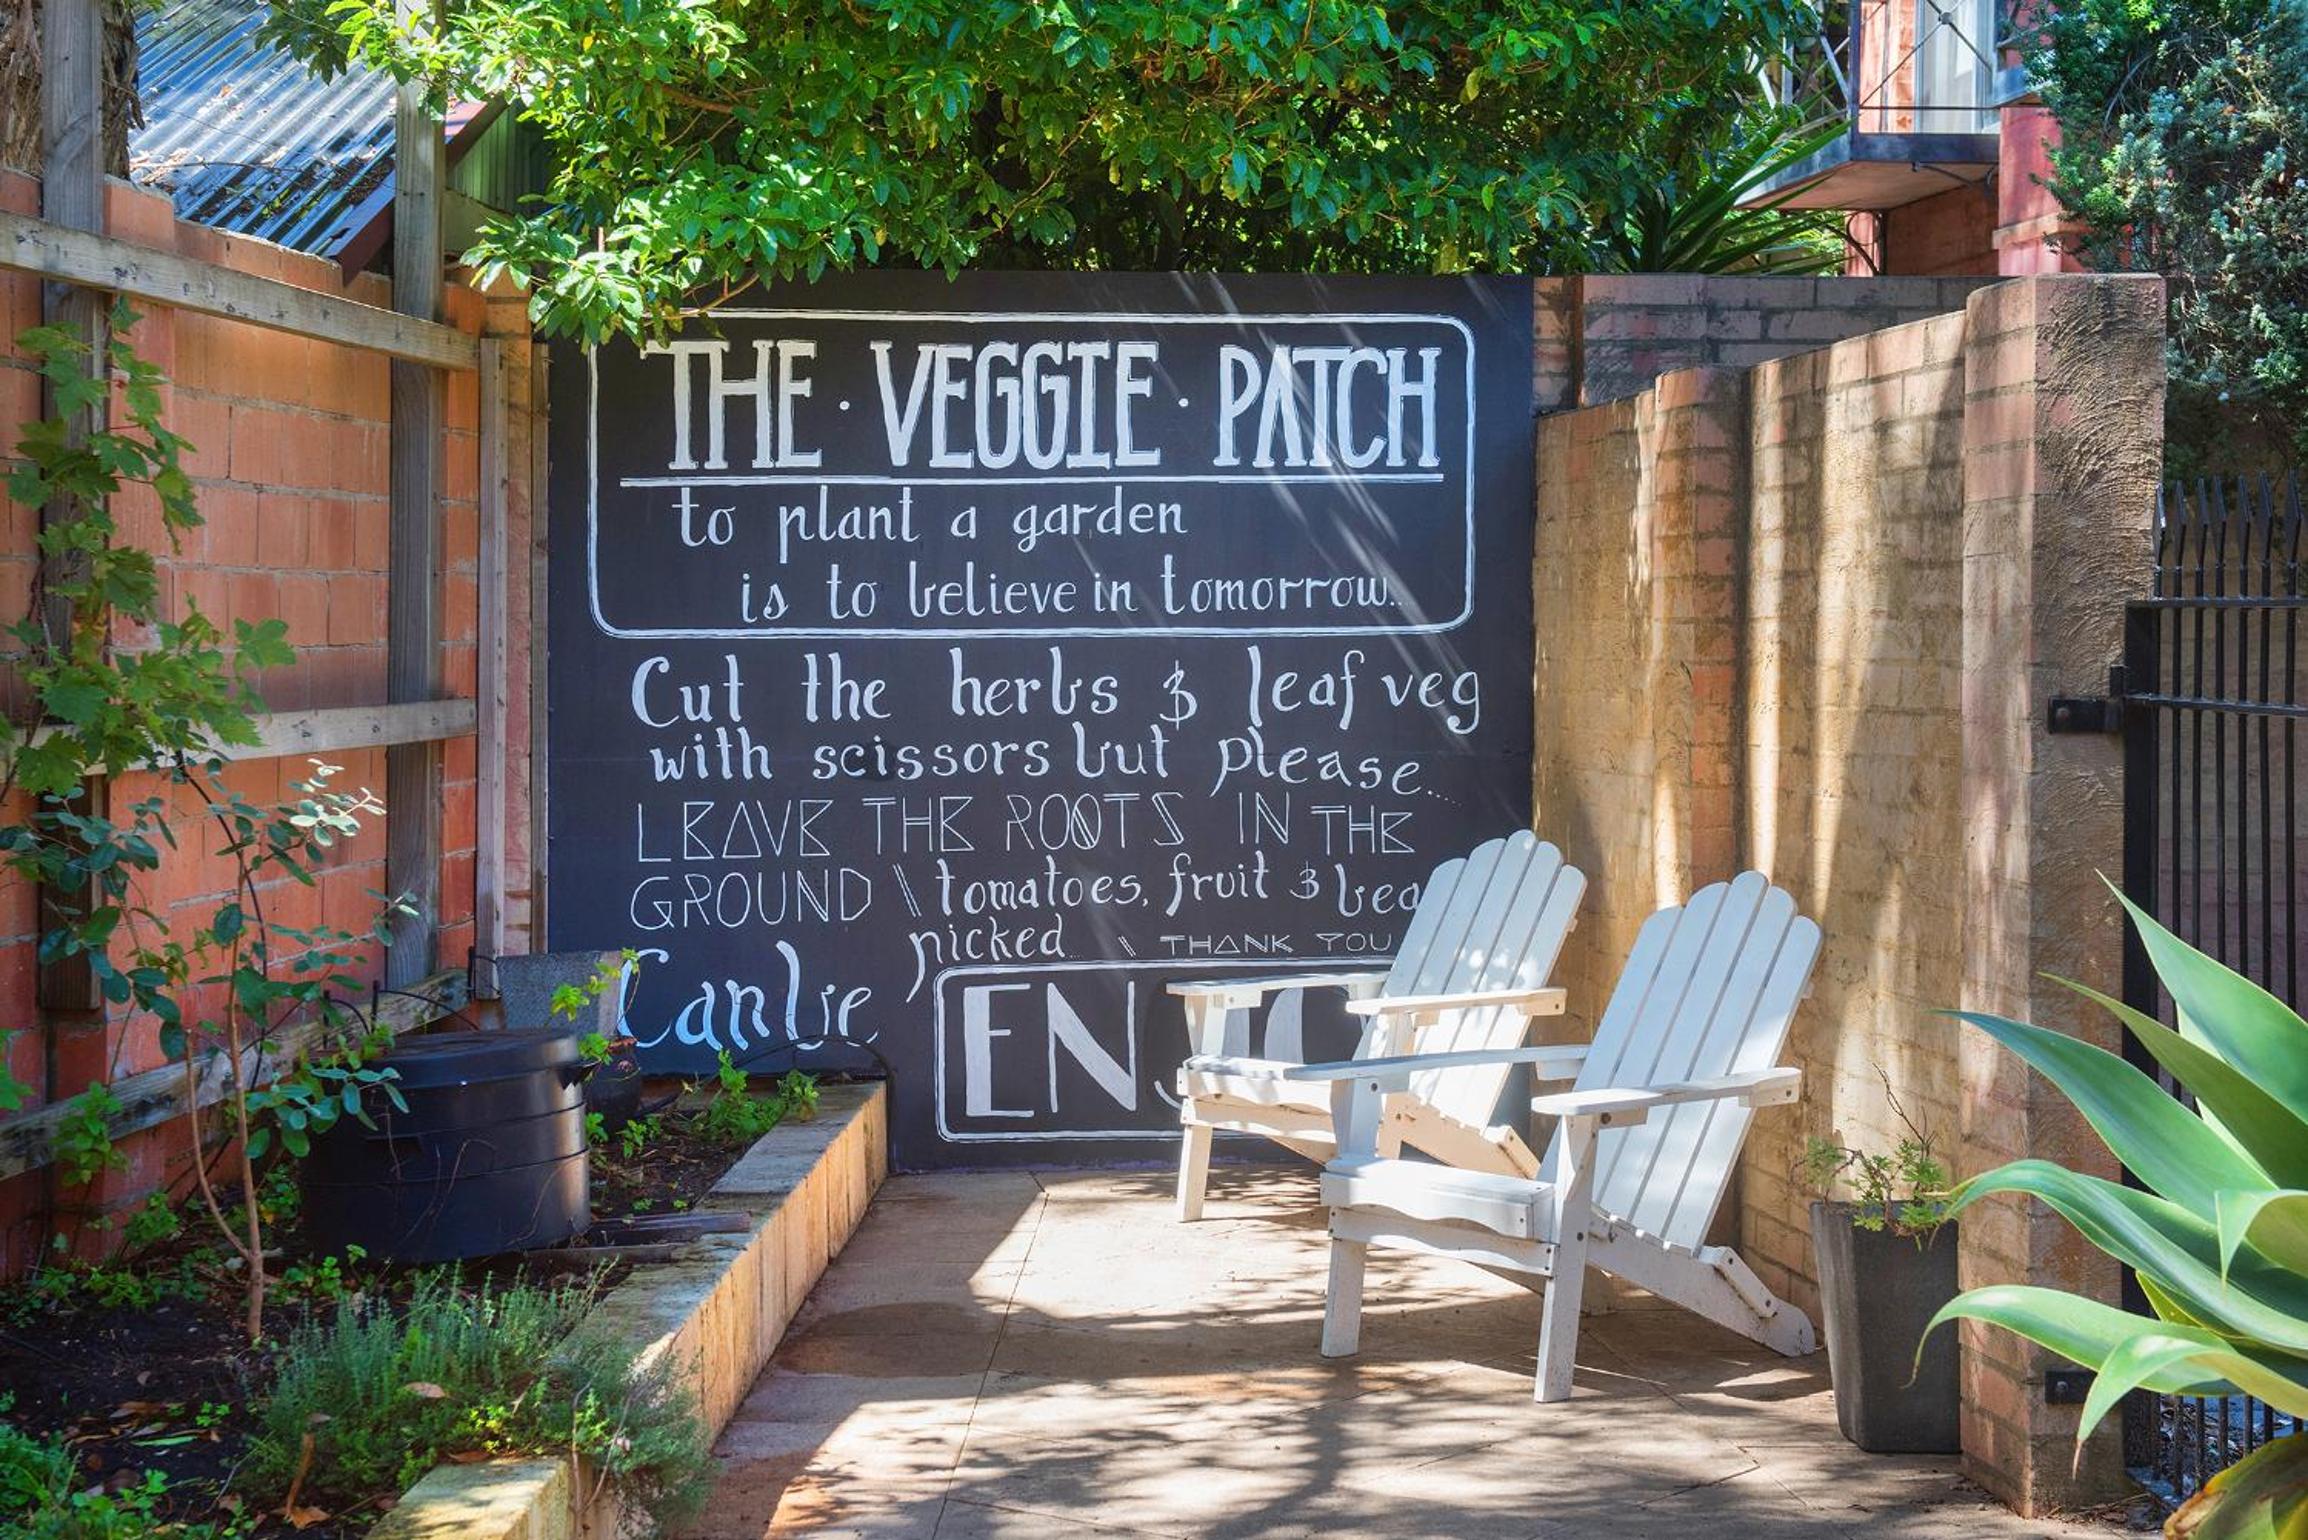 THE · VEGGIE · PATCH
to plant a garden
is to believe in tomorrow..
Cut the herbs & leaf veg
with scissors but please....
LEAVE THE ROOTS IN THE
GROUND \\ tomatoes, fruit &
Can be picked.. \\ THANK YOU